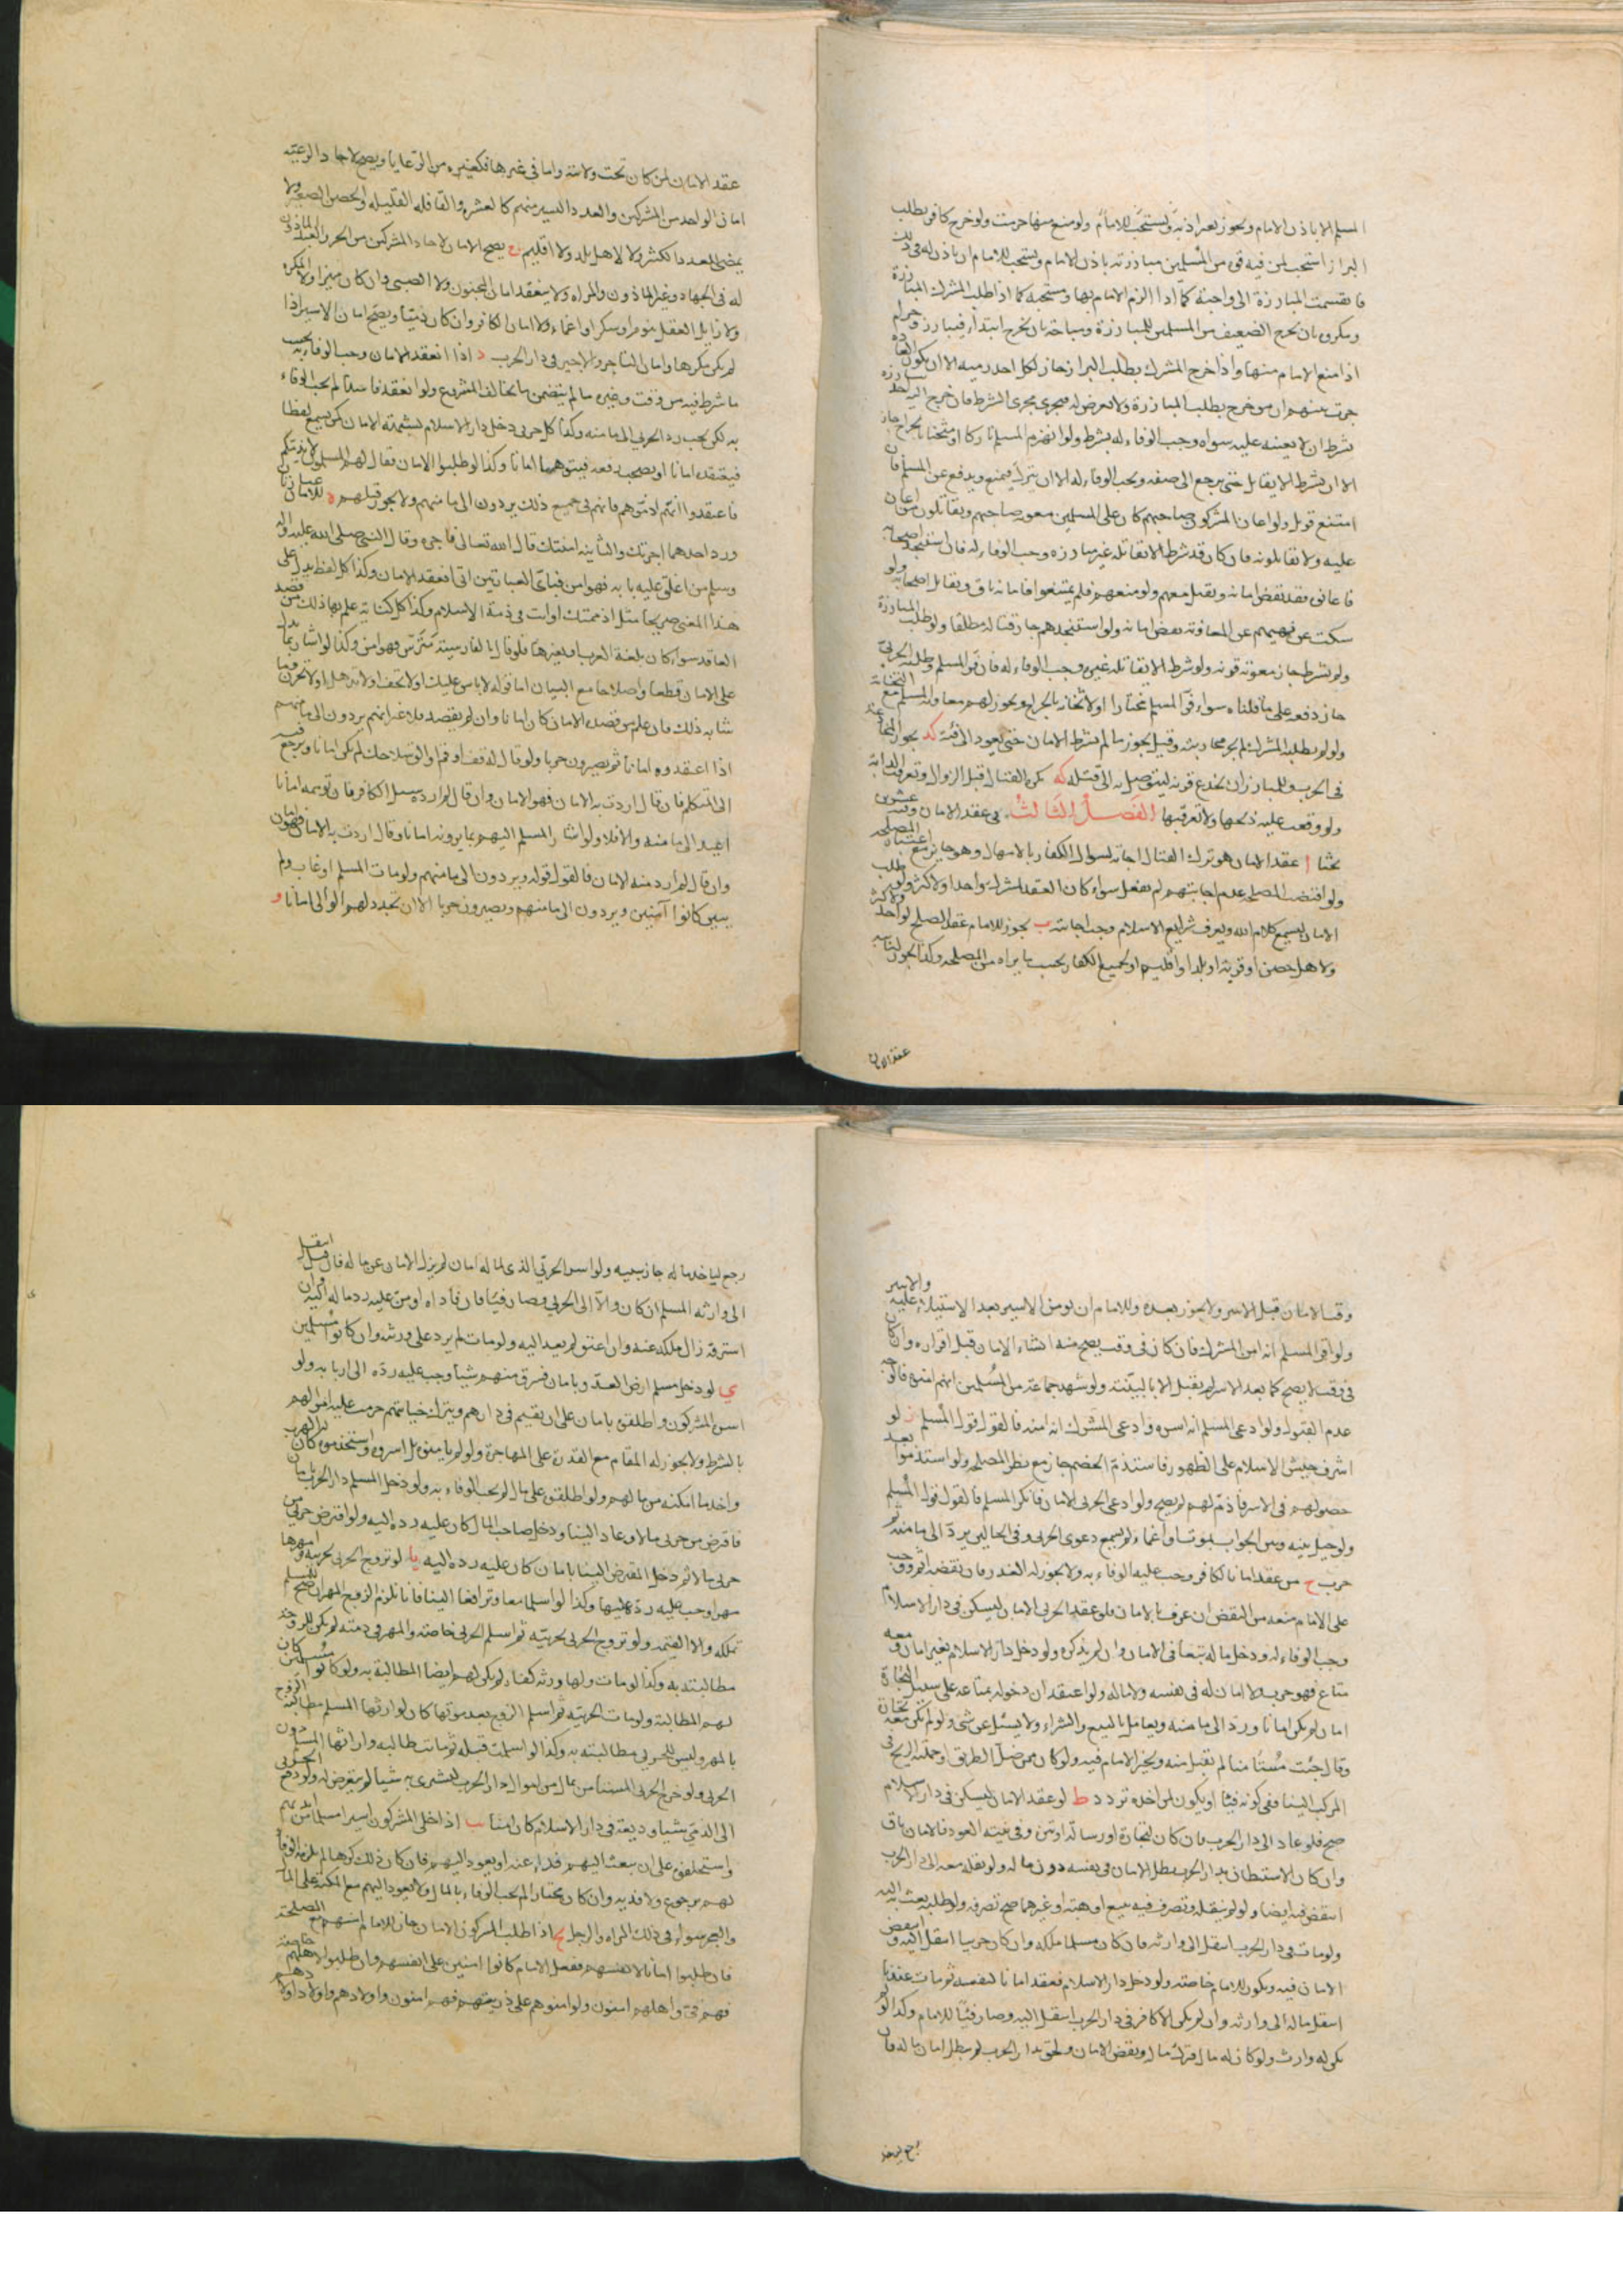 المسلم الا باذن الامام ويجوز بعد اذنه ويستحب للامام ولو منع منها حرمت ولو خرج كافر يطلب
البراز استحب لمن فيه قوة من المسلمين مبارزته باذن الامام ويستحب للامام ان ياذن له في ذلك
فانقسمت المبارزة الى واجبة كما اذا الزم الامام بها ومستحبة كما اذا طلب المشرك المبارزة
ومكروه بان يخرج الضعيف من المسلمين للمبارزة ومباحة بان يخرج ابتداء فيبارز وحرام
اذا منع الامام منها واذا خرج المشرك بطلب البراز جاز لكل احد رميه الا ان يكون العادة
جرت بينهم ان من خرج يطلب المبارزة ولا يعرض له فيجرى مجرى الشرط فان خرج اليه احد يبارزه
بشرط ان لا يعينه عليه سواه وجب الوفاء له بشرط ولو انهزم المسلم تاركا او مثخنا بالجراح جاز
الا ان يشرط الا يقاتل حتى يرجع الى صفه ويجب الوفاء له الا ان يترك فيمنع ويدفع عن المسلم فان
امتنع قوتل ولو اعان المشركون صاحبهم كان على المسلمين معونة صاحبهم ويقاتلون من اعان
عليه ولا يقاتلونه فان كان قد شرط الا يقاتله غير مبارزه وجب الوفاء له فان استنجد اصحابه
فاعانوه فقد نقض امانه ويقتل معهم ولو منعهم فلم يمتنعوا فامانه باق ويقاتل اصحابه ولو
سكت عن نهيهم عن المعاونة نقض امانه ولو استنجدهم جاز قتاله مطلقا ولو طلب المبارزة
ولم يشرط جاز معونة قرنه ولو شرط الا يقاتله غيره وجب الوفاء له فان فر المسلم وطلبه الحربي
جاز دفعه على ما قلناه سواء فر المسلم مختارا او لاثخانه بالجراح ويجوز لهم معاونة المسلم مع اثخانه
ولو لم يطلبه المشرك لم يجز محاربته وقيل يجوز ما لم يشرط الامان حتى يعود الى فئته كد يجوز المخادعة
في الحرب وللمبارز ان يخدع قرنه ليتوصل به الى قتله كه يكره القتال قبل الزوال وتعرقب الدابة
ولو وقفت عليه ذبحها ولا تعرقبها الفصل الثالث في عقد الامان وفيه عشرون
بحثا ا عقد الامان هو ترك القتال اجابة لسؤال الكفار بالامهال وهو جايز مع اعتبار المصلحة
ولو اقتضت المصلحة عدم اجابتهم لم يفعل سواء كان العقد لمشرك واحد او لاكثر ولو طلب
الامان ليسمع كلام الله ويعرف شرايع الاسلام وجب اجابته ب يجوز للامام عقد الصلح لواحد ولاكثر
ولاهل حصن او قرية او بلد او اقليم او لجميع الكفار بحسب ما يراه من المصلحة وكذا يجوز لنايبه
عقد الامان
عقد الامان لمن كان تحت ولايته واما في غيرها فكغيره من الرعايا ويصح لاحاد الرعية
امان الواحد من المشركين والعدد اليسير منهم كالعشرة والقافلة القليلة والحصن الصغير ولا
يمضى العدد الكثير ولا لاهل بلد ولا اقليم ج يصح الامان لاحاد المشركين من الحر والعبد الماذون
له في الجهاد وغير الماذون والمراة ولا ينعقد امان المجنون ولا الصبي وان كان مميزا ولا المكره
ولا زايل العقل بنوم او سكر او اغماء ولا امان الكافر وان كان ذميا ويصح امان الاسير اذا
لم يكن مكرها وامان التاجر والاجير في دار الحرب د اذا انعقد الامان وجب الوفاء به بحسب
ما شرط فيه من وقت وغيره ما لم يتضمن ما يخالف المشروع ولو انعقد فاسدا لم يجب الوفاء
به لكن يجب رد الحربي الى مامنه وكذا كل حربي دخل دار الاسلام بشبهة الامان كمن يسمع لفظا
فيعتقده امانا او يصحب رفعه فيتوهمها امانا وكذا لو طلبوا الامان فقال لهم المسلمون لا نذمكم
فاعتقدوا انهم اذموهم فانهم في جميع ذلك يردون الى مامنهم ولا يجوز قتلهم ه للامان عبارتان
ورد احدهما اجرتك والثانية امنتك قال الله تعالى فاجره وقال النبي صلى الله عليه واله
وسلم من اغلق عليه بابه فهو امن فباى العبارتين اتى انعقد الامان وكذا كل لفظ يدل على
هذا المعنى صريحا مثل اذممتك او انت في ذمة الاسلام وكذا كل كناية علم بها ذلك من قصد
العاقد سواء كان بلغة العرب او بغيرها فلو قال بالفارسية مترس فهو امن وكذا لو اشار بما يدل
على الامان قطعا واصلاحا مع البيان اما قوله لا باس عليك او لا تخف او لا تذهل او لا تحزن وما
شابه ذلك فان علم من قصده الامان كان امانا وان لم يقصد فلا غير انهم يردون الى مامنهم
اذا اعتقدوه امانا ثم يصيرون حربا ولو قال له قف او قم او الق سلاحك لم يكن امانا ويرجع فيه
الى المتكلم فان قال اردت به الامان فهو الامان وان قال لم ارده سئل الكافر فان توهمه امانا
اعيد الى مامنه والا فلا ولو اشار المسلم اليهم بما يرونه امانا وقال اردت به الامان فهو امان
وان قال لم ارد منه الامان فالقول قوله ويردون الى مامنهم ولو مات المسلم او غاب ولم
يبين كانوا آمنين ويردون الى مامنهم ويصيرون حربا الا ان يجدد لهم الوالى امانا و
وقت الامان قبل الاسر ولا يجوز بعده وللامام ان يومن الاسير بعد الاستيلاء عليه والاسر
ولو اقر المسلم انه امن المشرك فان كان في وقت يصح منه انشاء الامان قبل اقراره وان كان
في وقت لا يصح كما بعد الاسر لم يقبل الا بالبينة ولو شهد جماعة من المسلمين انهم امنوه فالوجه
عدم القبول ولو ادعى المسلم انه اسره وادعى المشرك انه امنه فالقول قول المسلم ز لو
اشرف جيش الاسلام على الظهور فاستذم الخصم جاز مع نظر المصلحة ولو استذموا بعد
حصولهم في الاسر فاذم لهم لم يصح ولو ادعى الحربي الامان فانكر المسلم فالقول قول المسلم
ولو حيل بينه وبين الجواب بموت او اغماء لم يسمع دعوى الحربي وفي الحالين يرد الى مامنه ثم
حرب ح من عقد امانا لكافر وجب عليه الوفاء به ولا يجوز له الغدر فان نقضه اثم ووجب
على الامام منعه من النقض ان عرف بالامان فلو عقد الحربي الامان ليسكن في دار الاسلام
وجب الوفاء له ودخل ماله تبعا في الامان وان لم يذكره ولو دخل دار الاسلام بغير امان ومعه
متاع فهو حرب لا امان له في نفسه ولا ماله ولو اعتقد ان دخوله بمتاعه على سبيل التجارة
امان لم يكن امانا ورد الى مامنه ويعامل بالبيع والشراء ولا يسئل عن شئ ولو لم يكن معه تجارة
وقال جئت مستامنا لم يقبل منه ويخير الامام فيه ولو كان ممن ضل الطريق او حملته الريح في
المركب الينا ففي كونه فيئا او يكون لمن اخذه تردد ط لو عقد الامان ليسكن في دار الاسلام
صح فلو عاد الى دار الحرب فان كان لتجارة او رسالة او تنزه وفي نيته العود فالامان باق
وان كان الاستيطان بدار الحرب بطل الامان في نفسه دون ماله ولو نقله معه الى دار الحرب
انتقض فيه ايضا ولو لم ينقله وتصرف فيه ببيع او هبة او غيرهما صح تصرفه ولو طلبه بعث به اليه
ولو مات في دار الحرب انتقل الى وارثه فان كان مسلما ملكه وان كان حربيا انتقل اليه وانتقض
الامان فيه ويكون للامام خاصة ولو دخل دار الاسلام فعقد امانا لنفسه ثم مات عندنا
انتقل ماله الى وارثه وان لم يكن الا كافر في دار الحرب انتقل اليه وصار فيئا للامام وكذا لو لم
يكن له وارث ولو كان له مال فترك ماله ونقض الامان ولحق بدار الحرب لم يبطل امان ماله فان
رجع لياخذ
رجع لياخذ ماله جاز سبيه ولو اسر الحربي الذي لماله امان لم يزل الامان عن ماله فان قتل انتقل
الى وارثه المسلم ان كان والا الى الحربي وصار فيئا فان فاداه او من عليه رد ماله اليه وان
استرقه زال ملكه عنه وان اعتق لم يعد اليه ولو مات لم يرد على ورثته وان كانوا مسلمين
ي لو دخل مسلم ارض العدو بامان فسرق منهم شيئا وجب عليه رده الى اربابه ولو
اسره المشركون واطلقوه بامان على ان يقيم في دارهم ويترك خيانتهم حرمت عليه اموالهم
بالشرط ولا يجوز له المقام مع القدرة على المهاجرة ولو لم يامنوه بل اسروه واستخدموه كان له الهرب
واخذ ما امكنه من مالهم ولو اطلقوه على مال لم يجب الوفاء به ولو دخل المسلم دار الحرب بامان
فاقترض من حربي مالا وعاد الينا ودخل صاحب المال كان عليه رده اليه ولو اقترض حربي من
حربي مالا ثم دخل المقترض الينا بامان كان عليه رده اليه يا لو تزوج الحربي بحربية وامهرها
مهرا وجب عليه رده عليها وكذا لو اسلما معا وترافعا الينا فانا نلزم الزوج المهر ان صح للمسلم
تملكه والا القيمة ولو تزوج الحربي بحربية ثم اسلم الحربي خاصة والمهر في ذمته لم يكن للزوجة
مطالبته به وكذا لو مات ولها ورثة كفار لم يكن لهم ايضا المطالبة به ولو كانوا مسلمين كان
لهم المطالبة ولو مات الحربية ثم اسلم الزوج بعد موتها كان لوارثها المسلم مطالبة الزوج
بالمهر وليس للحربي مطالبته به وكذا لو اسلمت قبله ثم ماتت طالبه وارثها المسلم دون
الحربي ولو خرج الحربي المستامن بمال من اموال دار الحرب ليشترى به شيئا لم يتعرض له ولو دفع الحربي
الى الذمي شيئا وديعة في دار الاسلام كان امنا يب اذا خلى المشركون اسيرا مسلما من ايديهم
واستحلفوه على ان يبعث اليهم فداء عنه او يعود اليهم فان كان ذلك كرها لم يلزمه الوفاء
لهم برجوع ولا فدية وان كان مختارا لم يجب الوفاء بالمال ولا يعود اليهم مع المكنة على المال
والعجز سواء في ذلك المراة والرجل يج اذا طلب المشركون الامان جاز للامام امنهم مع المصلحة
فان طلبوا امانا لانفسهم ففعل الامام كانوا امنين على انفسهم وان طلبوا لاهلهم خاصة
فهم فئ واهلهم امنون ولو امنوهم على ذريتهم فهم امنون واولادهم واولاد اولادهم